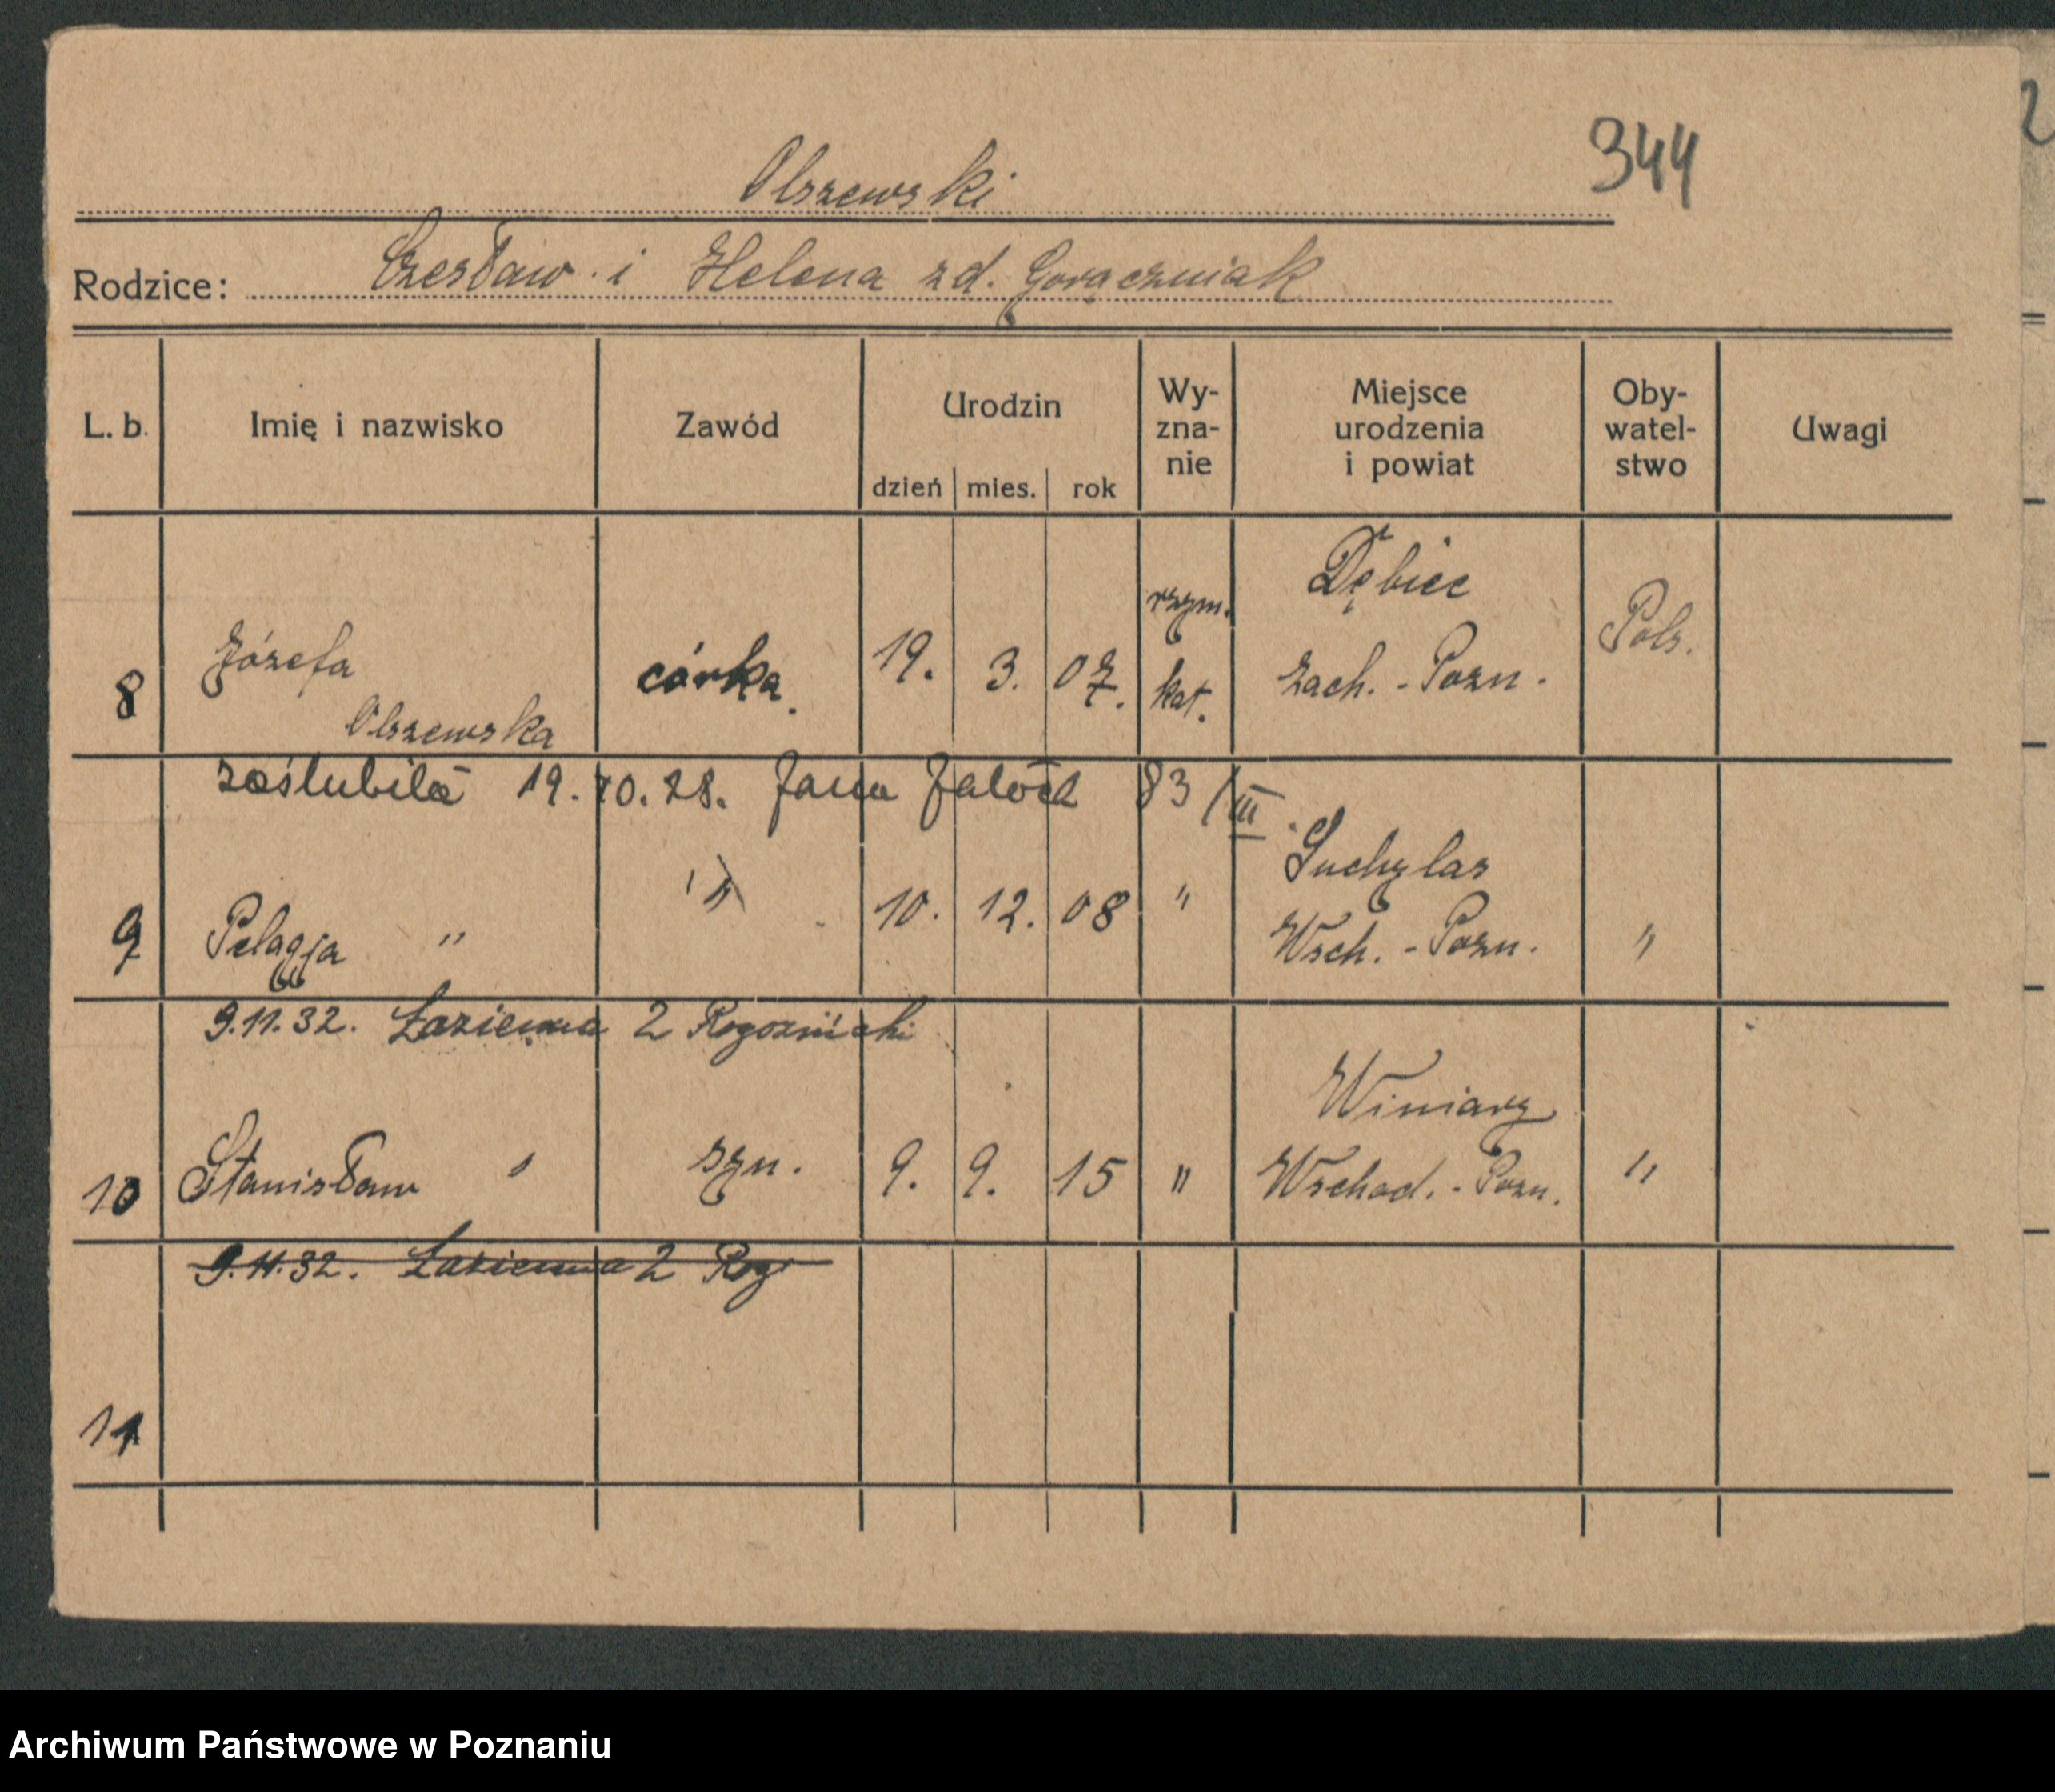 344
Olszewski
Rodzice: Czesław i Helena zd. Gorączniak
L. b. Imię i nazwisko Zawód Urodzin dzień mies. rok Wy-zna-nie Miejsce urodzenia i powiat Oby-watel-stwo Uwagi
8 Józefa Olszewska córka. 19. 3. 07. rzym. kat. Dębiec Zach. - Pozn. Pols.
zaślubiła 19.10.28. Jana 83/III.
9 Pelagja " " 10. 12. 08 " Suchylas Wsch. - Pozn. "
9.11.32. Łazienna 2 Rogoziński
10 Stanisław " syn. 9. 9. 15 " Winiary Wschod. - Pozn. "
9.11.32. Łazienna 2 Rog
11
Archiwum Państwowe w Poznaniu